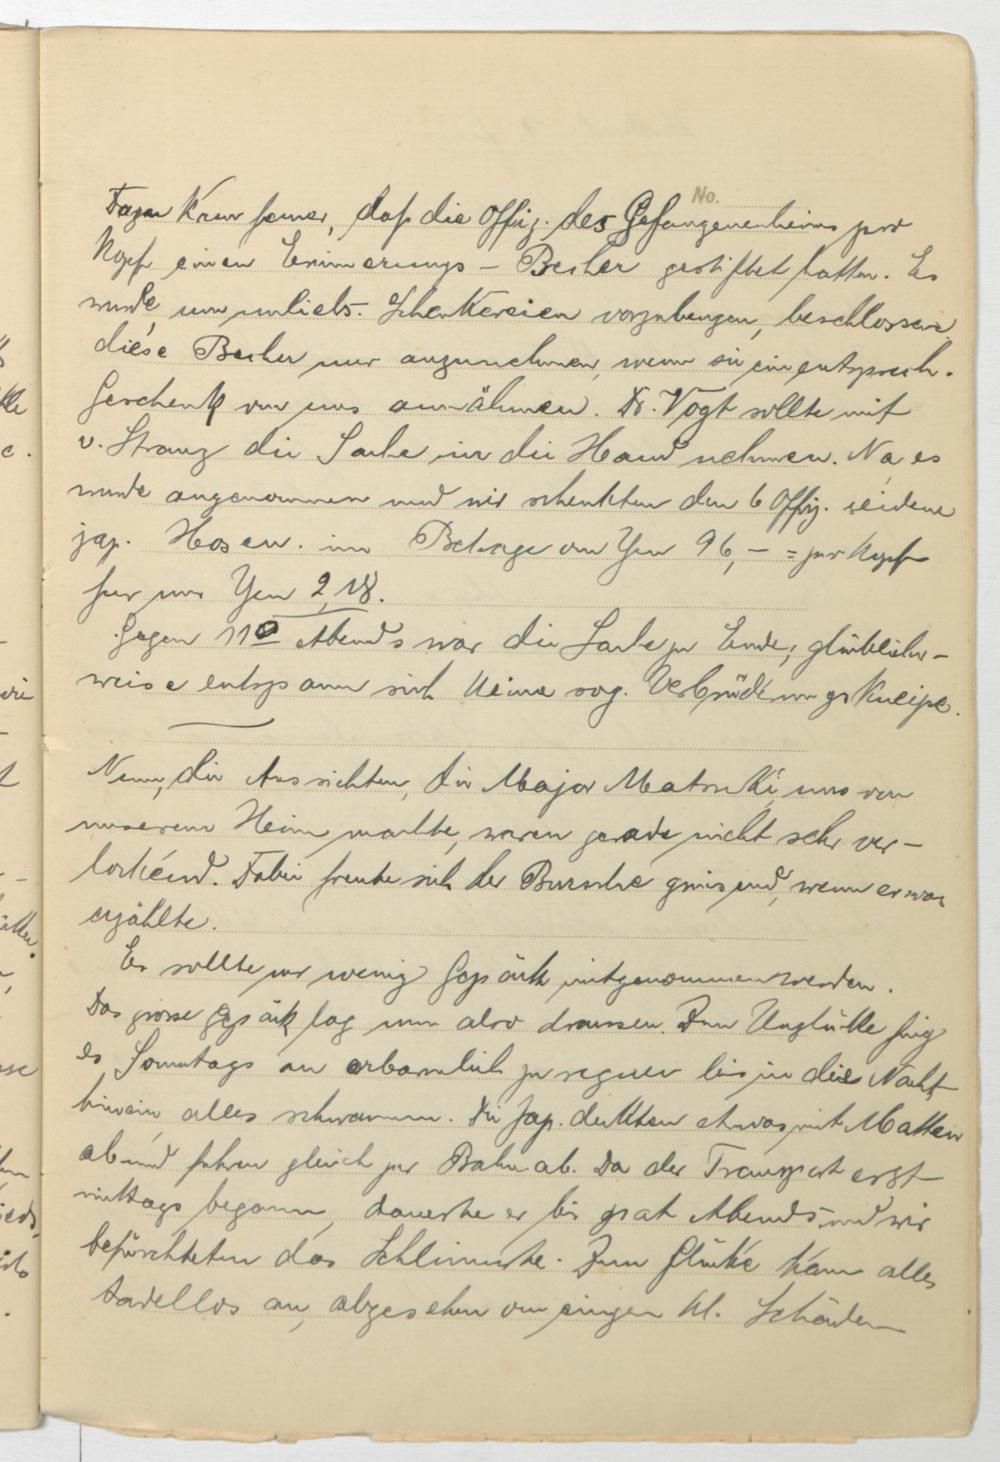 No.
Dazu kam ferner, daß die Offiz. des Gefangenenheims pro
Kopf einen Erinnerungs - Becher gestiftet hatten. Es
wurde, um unliebs. Schenkereien vorzubeugen, beschlossen,
diese Becher nur anzunehmen, wenn sie ein entsprech.
Geschenk von uns annähmen. Dr. Vogt sollte mit
v. Stranz die Sache in die Hand nehmen. Na es
wurde angenommen und wir schenkten den 6 Offiz. seidene
jap. Hosen. im Betrage von Yen 96,- = pro Kopf
für uns Yen 2,18.
Gegen 11º Abends war die Sache zu Ende, glücklicher-
weise entspann sich keine sog. Verbrüderungskneipe.
Nun, die Aussichten, die Major Matsuki uns von
unserem Heim machte, waren gerade nicht sehr ver-
lockend. Dabei freute sich der Bursche grinsend, wenn er was
erzählte.
Es sollte nur wenig Gepäck mitgenommen werden.
Das grosse Gepäck lag nun also draussen. Zum Unglücke fing
es Sonntags an erbarmlich zu regnen bis in die Nacht
hinein alles schwamm. Die Jap. deckten etwas mit Matten
ab und fuhren gleich zur Bahn ab. Da der Transport erst
mittags begann, dauerte er bis spät Abends und wir
befürchteten das Schlimmste. Zum Glücke kam alles
tadellos an, abgesehen von einigen kl. Schäden